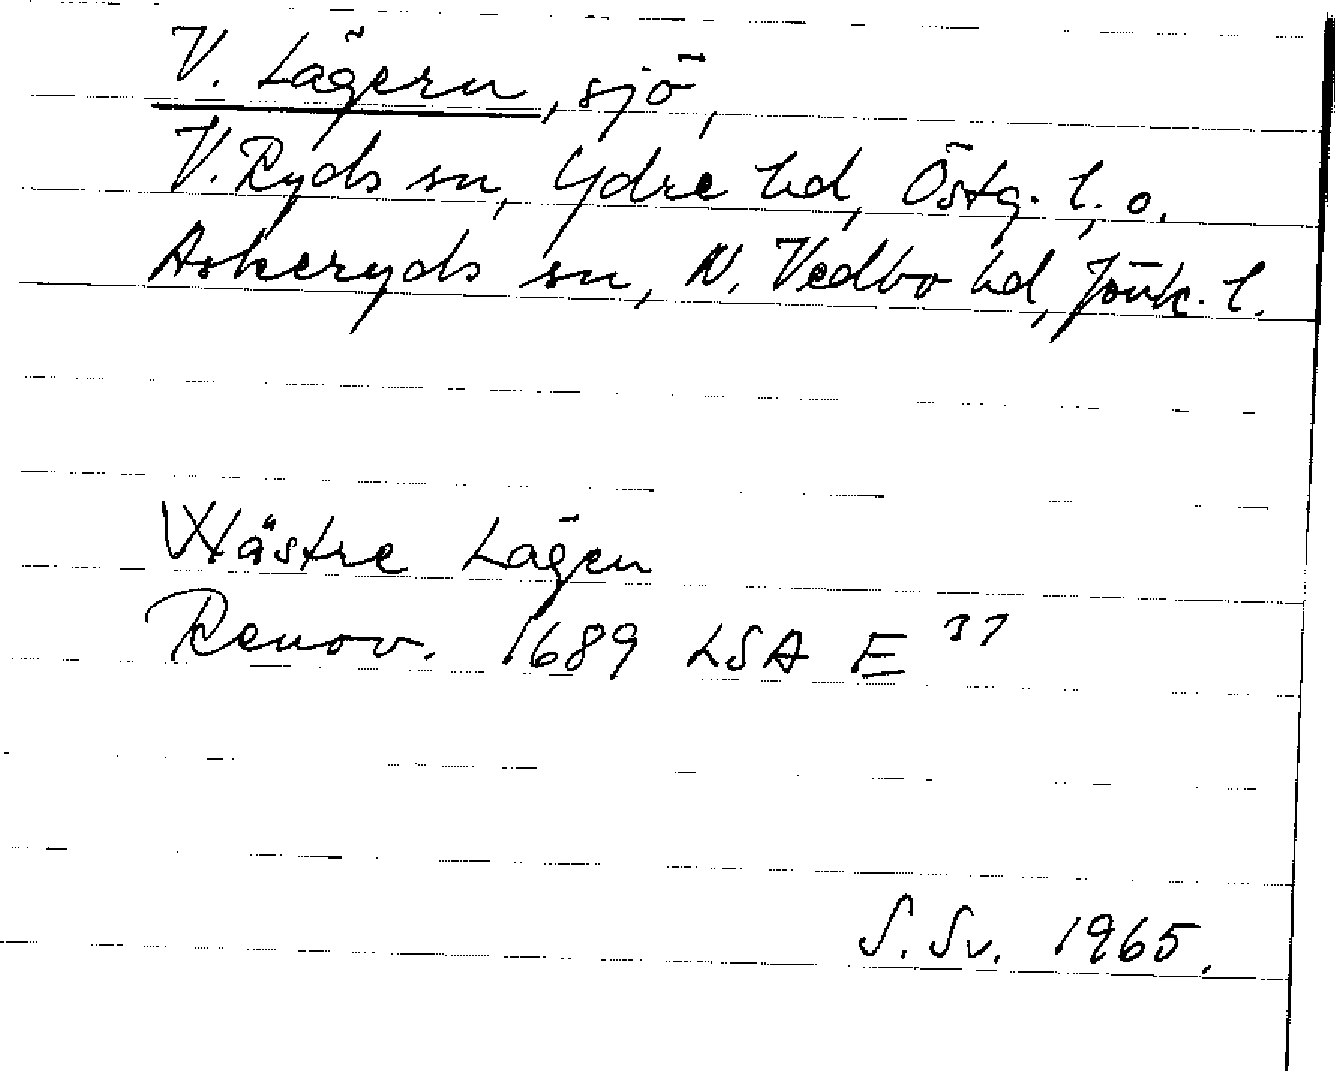 V. Lägern, sjö,
V. Ryds sn, Ydre hd, Östg. l. o.
Askeryds sn, N. Vedbo hd, Jönk. l.
Wästre Lägen
Renov. 1689 LSA E 37
S. Sv. 1965.